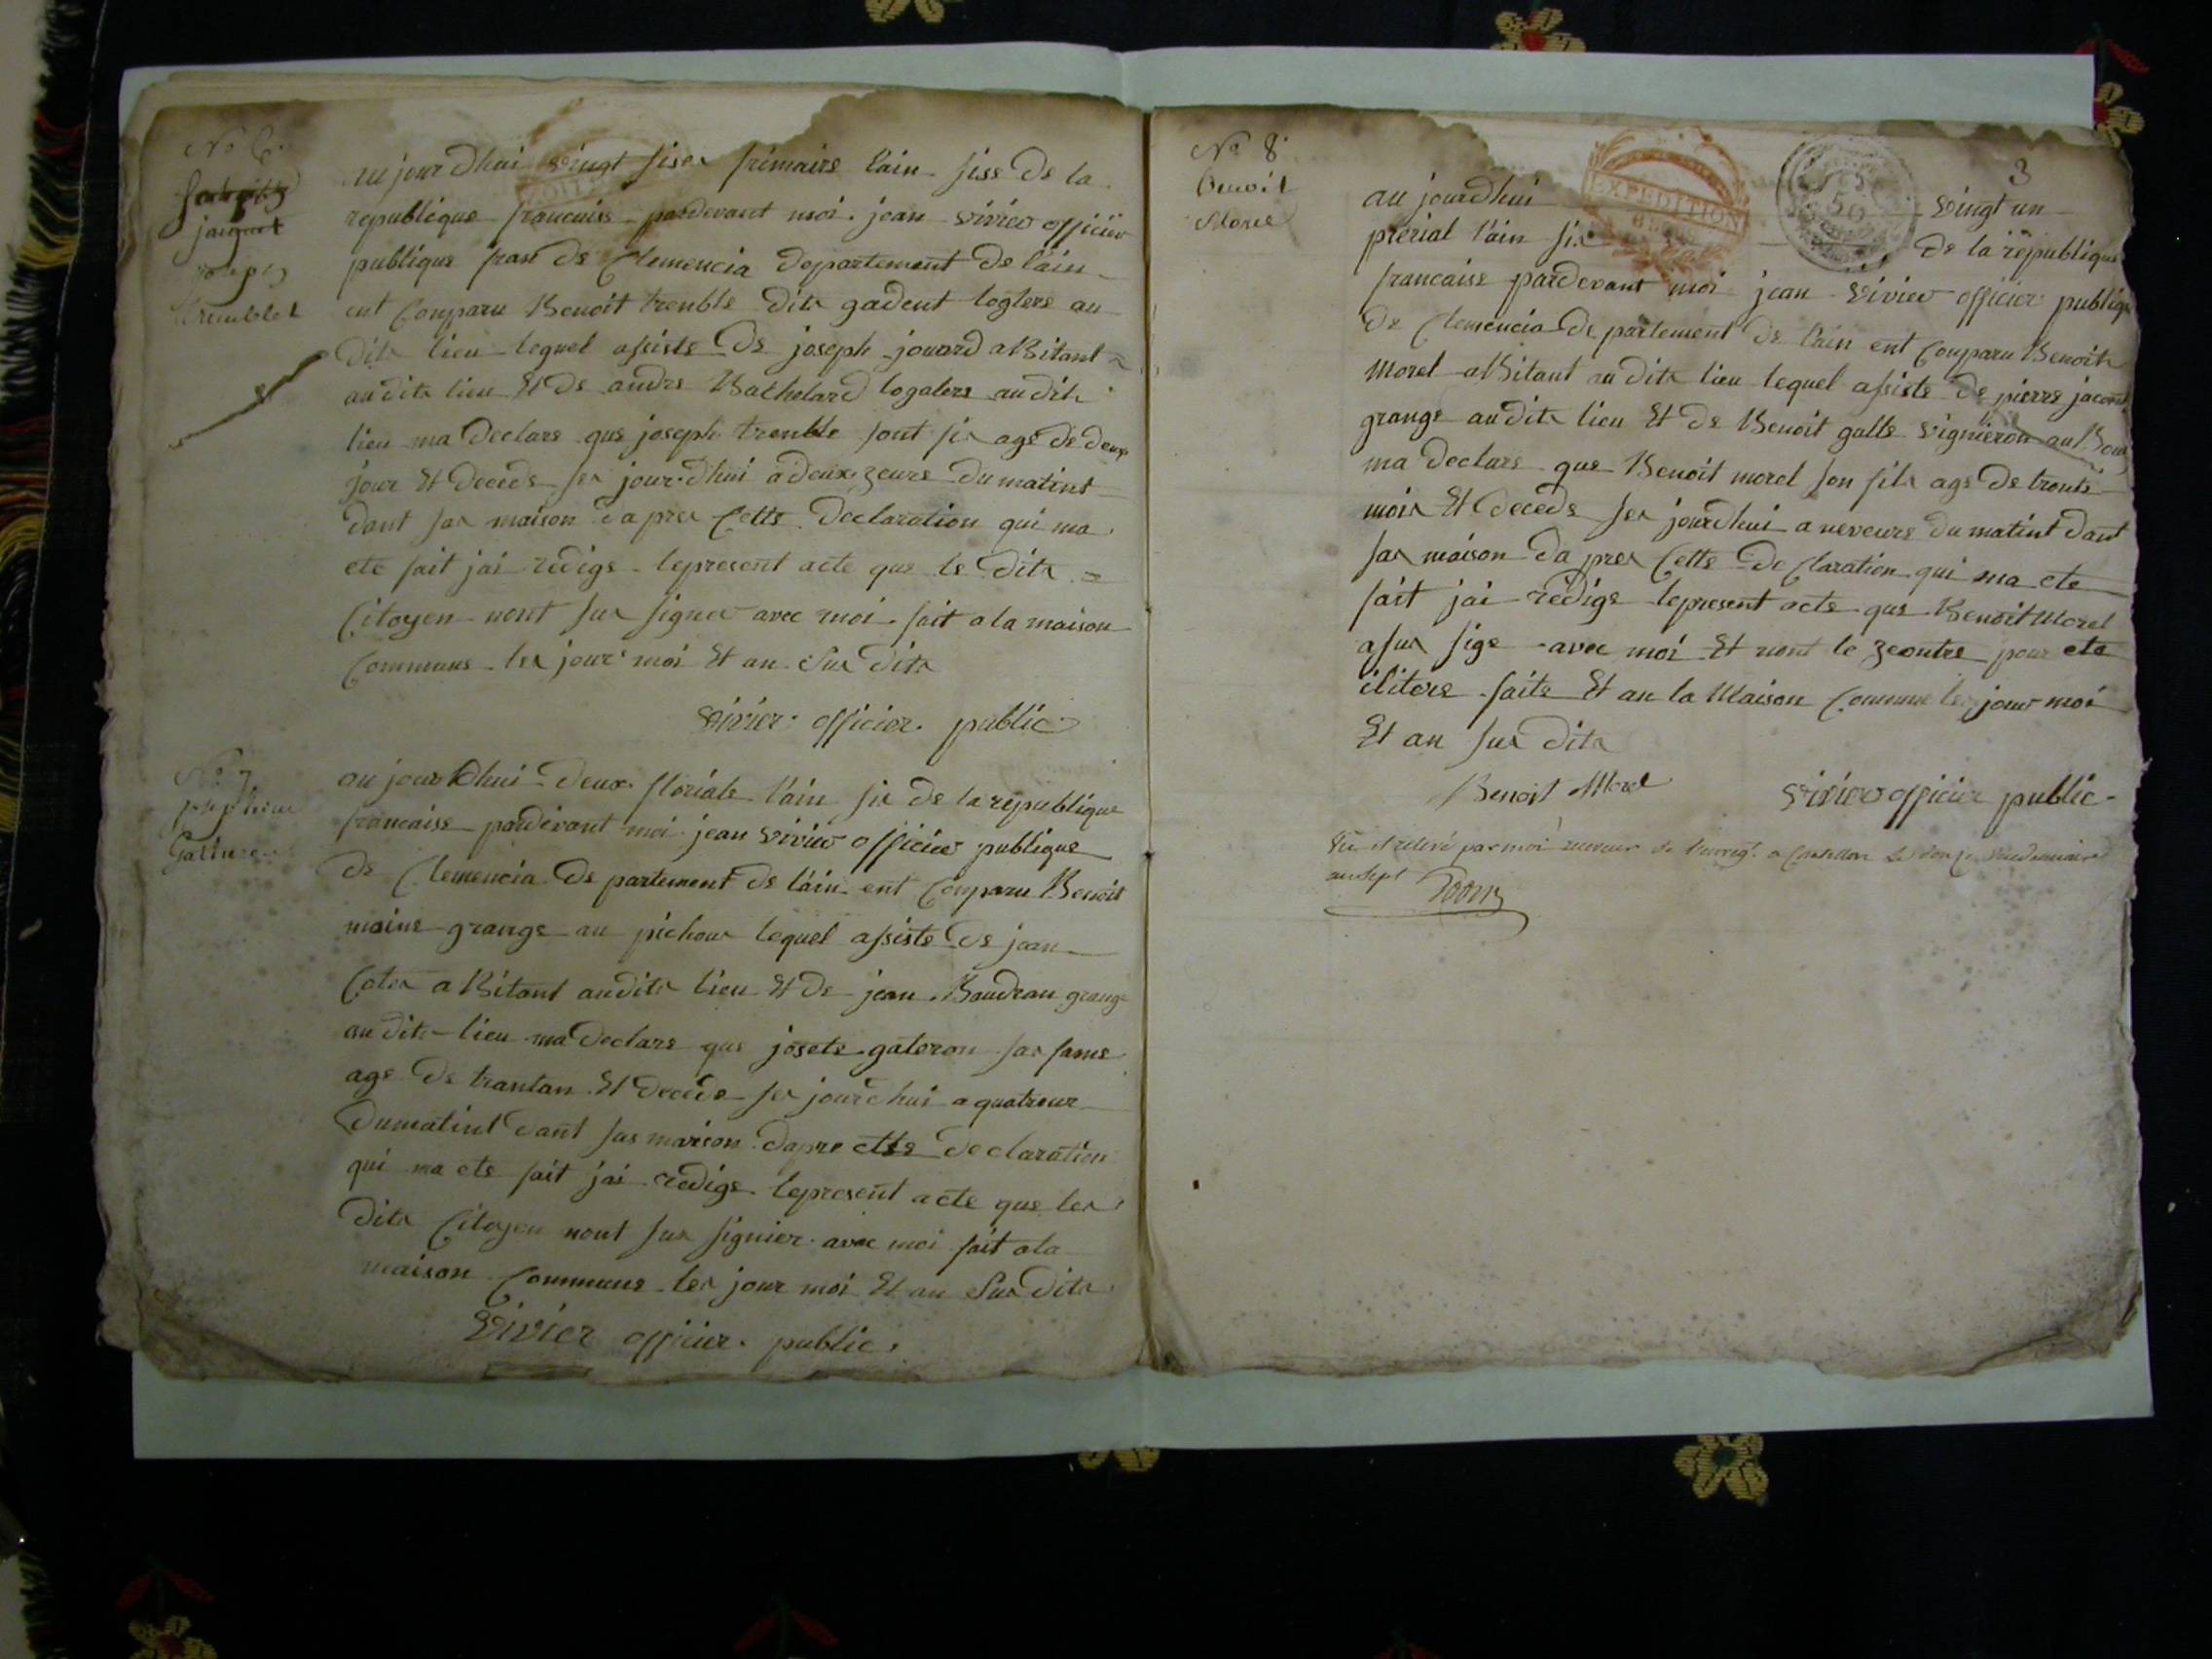 No 6.
jaiquet
joseph
tremblet
au jourdhui vingt sises frimaire lain siss de la
republique francaiss pardevant moi jean vivier officier
publique fran de Clemencia departement de lain
ent Conparu Benoit trenble dits gadent logters au
dits lieu lequel assiste de joseph jouard abitant
audits lieu et de andre Bathelard logaters au dits
lieu ma declare que joseph trenble sont fis age de deux
jour et decede ses jourdhui a deux zeure dumatint
dant sas maison dapres Cette declaration qui ma
ete fait jai redige lepresent acte que le dits
Citoyen nont sus signer avec moi fait a la maison
Commune les jour moi et an sus dits
vivier officier public
No 7
au jourdhui deux floriale lain sis de la republique
francaise pardevant moi jean vivier officier publique
de Clemencia de partement de lain ent Conparu Benoit
moine grange au pichous lequel assiste de jean
Cotes abitant audits lieu et de jean Baudran grange
au dits lieu ma declare que josete galeron sas fame
age de trantan et decede ses jourdhui a quatreur
dumatint dant sas maison dapre ette declaration
qui ma ete fait jai redige lepresent acte que les
dits Citoyen nont sus signier avec moi fait ala
maison Commune les jour moi et an sus dits
vivier officier public
3
No 8
Benoit
Morel
EXPEDITION
50
au jourdhui vingt un
prerial lain sis de la republique
francaise pardevant moi jean vivier officier publique
de Clemencia de partement de lain ent Conparu Benoits
Morel abitant au dits lieu lequel assiste de pierre
grange audits lieu et de Benoit galle vignieron au
ma declare que Benoit morel son fils age de
mois et decede ses jourdhui a neveure du matint dant
sas maison da pres Cette declaration qui ma ete
fait jai redige lepresent acte que Benoit Morel
a sus sige avec moi et nont le zeontre pour ete
ilitere faite et an la Maison Commune les jour moi
et an sus dits
Benoit Morel vivier officier public
Vu et relevé par moi receveur de l'enreg.t a Chatillon le onze Vendemiaire
an sept